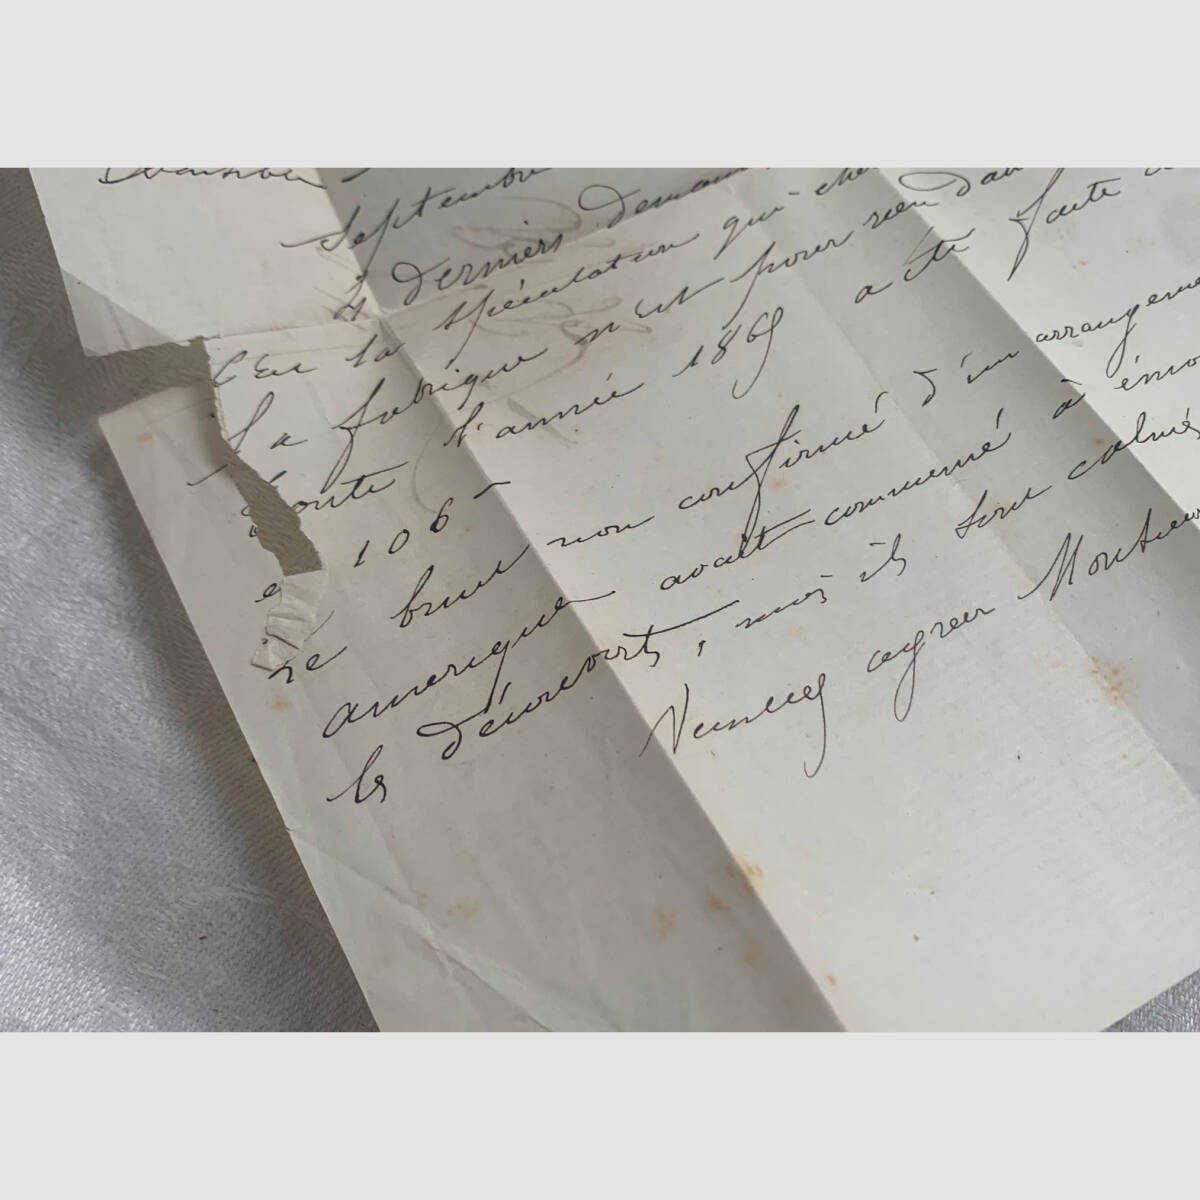 Septembre
4 derniers deman
C'est la spéculation qui che
La fabrique n'est pour rien dans
toute l'année 1869 a été faite a
e 106 -
Le bruit non confirmé d'un arrangeme
amerique avait commencé à émo
les découverts, mais ils sont calmés
Veuillez agréer Monsieur